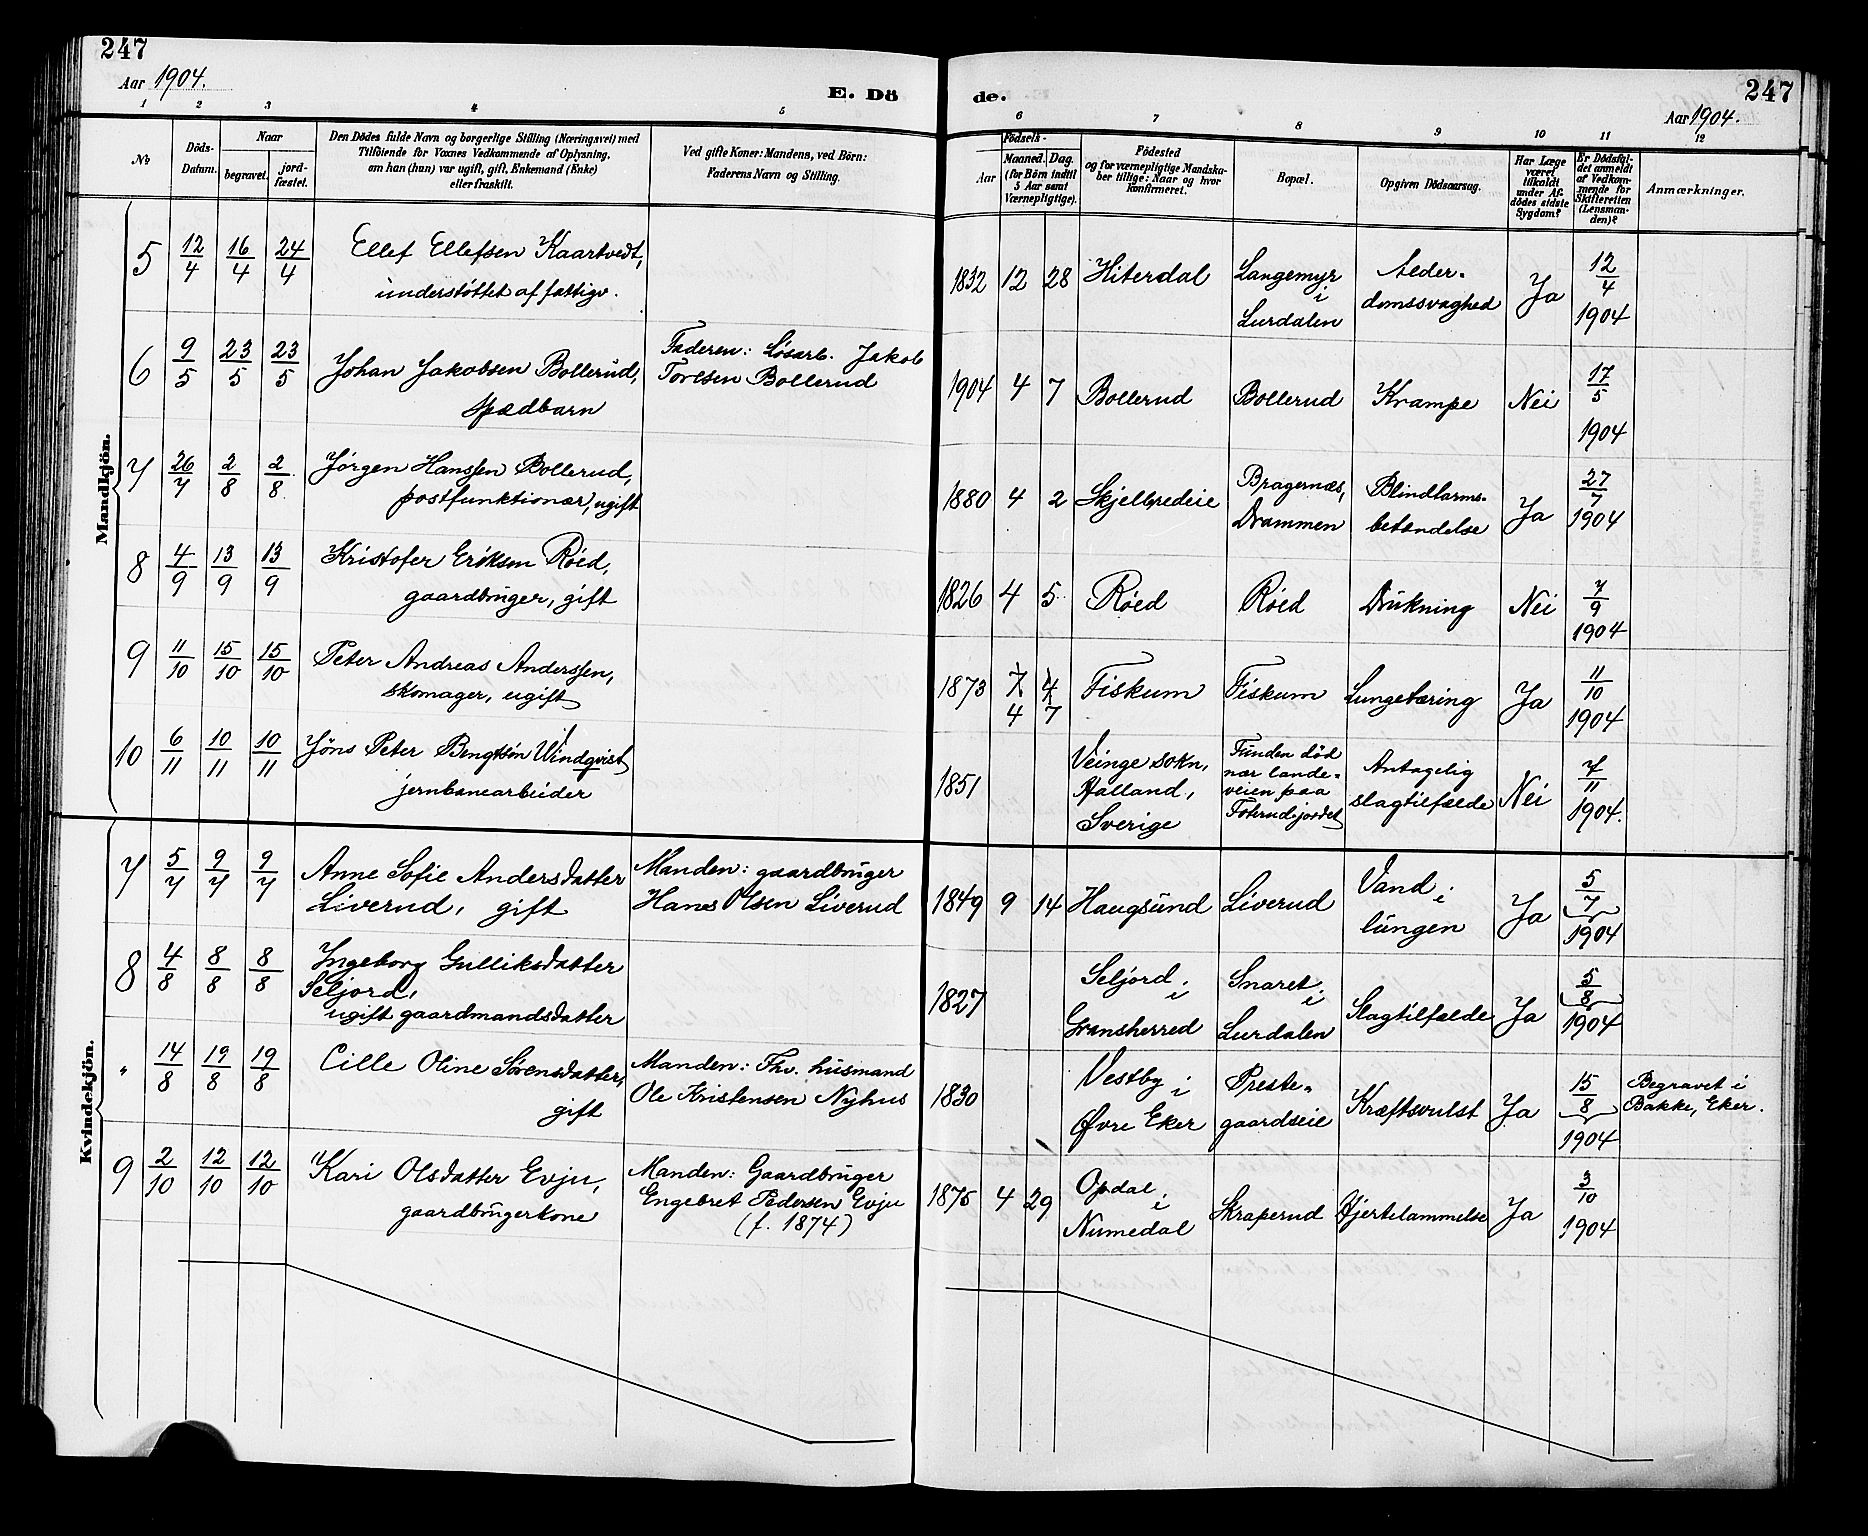 247
Aar 1904.
E. Dö
1 2 3 4 5
No
Döds-Datum.
Naar
begravet.
jord-fæstet.
Den Dödes fulde Navn og borgerlige Stilling (Næringsvei) med
Tilföiende for Voxnes Vedkommende af Oplysning,
om han (hun) var ugift, gift, Enkemand (Enke)
eller fraskilt.
Ved gifte Koner: Mandens, ved Börn:
Faderens Navn og Stilling.
Mandkjön.
5 12/4 16/4 24/4 Ellef Ellefsen Kaartvedt,
understöttet af fattigv.
6 9/5 23/5 23/5 Johan Jakobsen Bollerud,
spædbarn
Faderen: Løsarb. Jakob
Torlsen Bollerud
7 26/7 2/8 2/8 Jørgen Hanssen Bollerud,
postfunktionær, ugift
8 4/9 13/9 13/9 Kristofer Eriksen Röed,
gaardbruger, gift
9 11/10 15/10 15/10 Peter Andreas Anderssen,
skomager, ugift
10 6/11 10/11 10/11 Jöns Peter Bengtsön Windqvist
jernbanearbeider
Kvindekjön.
7 5/7 9/7 9/7 Anne Sofie Andersdatter
Liverud, gift
Manden: gaardbruger
Hans Olsen Liverud
8 4/8 8/8 8/8 Ingeborg Gulliksdatter
Seljord,
ugift gaardmandsdatter
" 14/8 19/8 19/8 Cille Oline Sörensdatter,
gift
Manden: Fhv. husmand
Ole Kristensen Nyhus
9 2/10 12/10 12/10 Kari Olsdatter Evju,
gaardbrugerkone
Manden: Gaardbruger
Engebret Pedersen Evju
(f. 1874)
de.
247
Aar 1904.
6 7 8 9 10 11 12
Födsels-
Aar
Maaned. Dag.
(for Börn indtil
5 Aar samt
Værnepligtige).
Födested
og for værnepligtige Mandska-
ber tillige: Naar og hvor
konfirmeret.
Bopæl.
Opgiven Dödsaarsag.
Har Læge
været
tilkaldt
under Af-
dödes sidste
Sygdom?
Er Dödsfal-
det anmeldt
af Vedkom-
mende for
Skifteretten
(Lensman-
den)?
Anmærkninger.
1832 12 28 Hiterdal
Langemyr
i
Lurdalen
Alder-
domssvaghed
Ja
12/4
1904
1904 4 7 Bollerud Bollerud Krampe Nei
17/5
1904
1880 4 2 Skjelbredeie
Bragernæs,
Drammen
Blindtarms-
betændelse
Ja
27/7
1904
1826 4 5 Röed Röed Drukning Nei
7/9
1904
1873 7 4 Fiskum Fiskum Lungetæring Ja
4 7
11/10
1904
1851
Veinge sokn,
Halland,
Sverige
Funden död
nær lande-
veien paa
Foterudjordet
Antagelig
slagtilfælde
Nei
7/11
1904.
1849 9 14 Haugsund Liverud
Vand i
lungen
Ja
5/7
1904
1827
Seljord i
Gransherred
Snaret i
Lurdalen
Slagtilfælde
Ja
5/8
1904
1830
Vestby i
Øvre Eker
Preste-
gaardseie
Kræftsvulst
Ja
15/8
1904
Begravet i
Bakke, Eker.
1875 4 29
Opdal i
Numedal
Skraperud
Hjertelammelse
Ja
3/10
1904